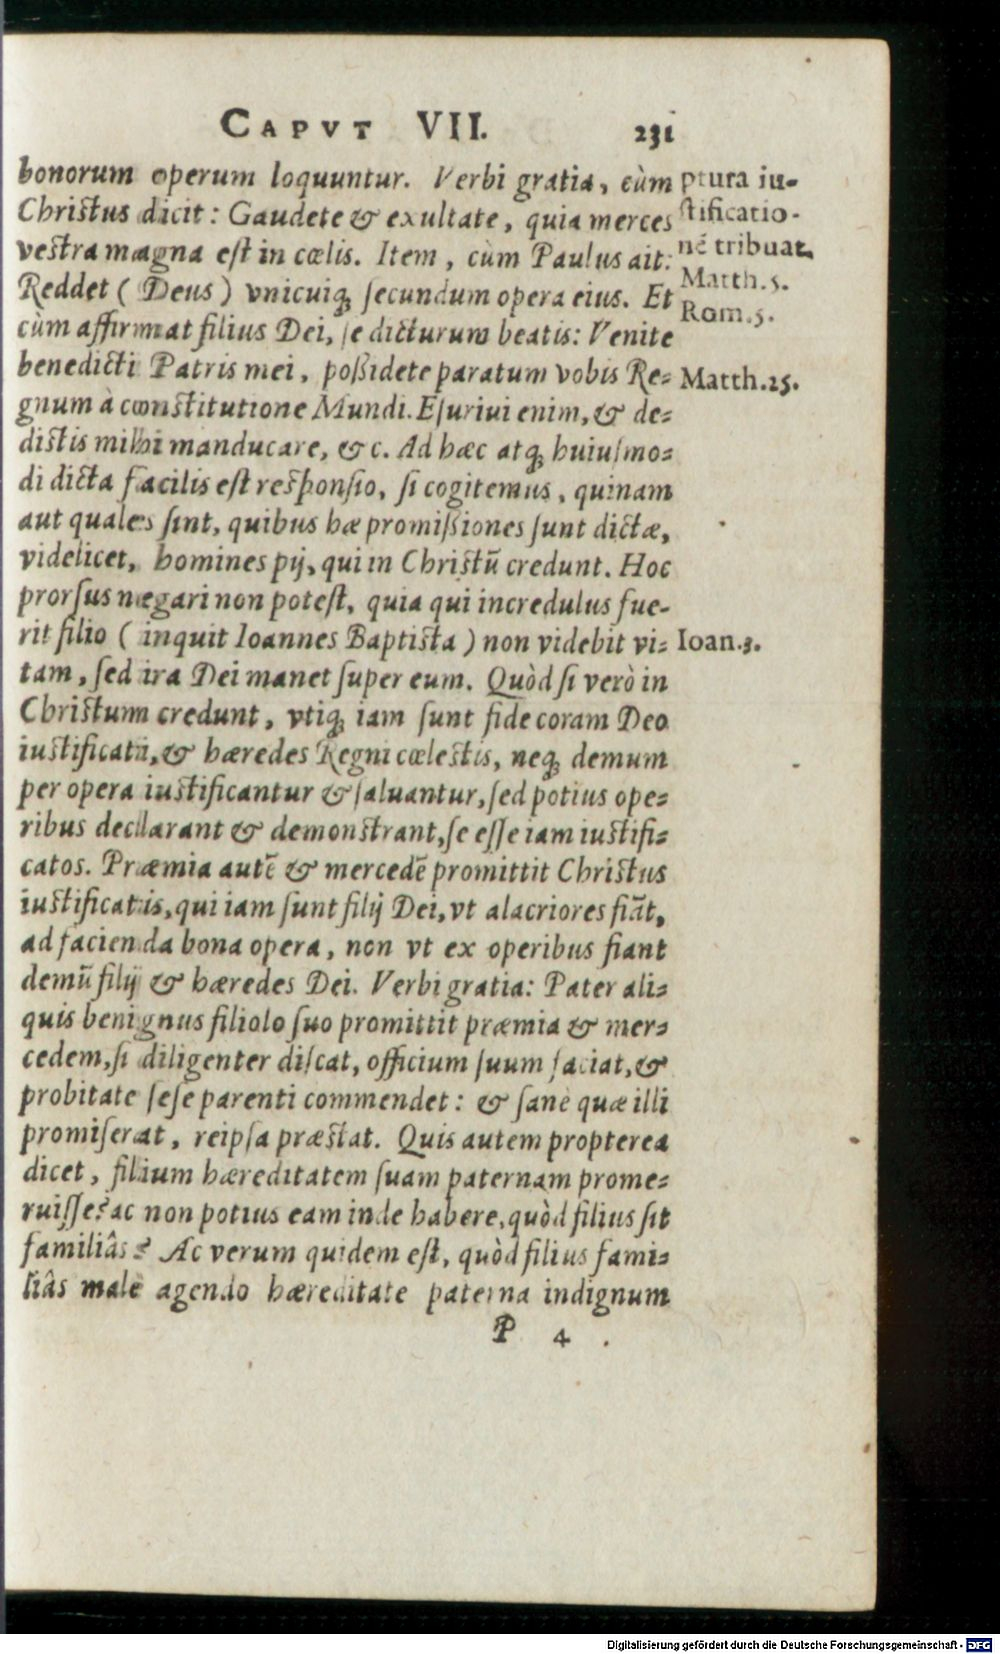 CAPVT VII. 231
bonorum operum loquuntur. Verbi gratia, cùm
Christus dicit: Gaudete & exultate, quia merces
vestra magna est in cœlis. Item, cùm Paulus ait:
Reddet (Deus) vnicuiq́; secundum opera eius. Et
cùm affirmat filius Dei, se dicturum beatis: Venite
benedicti Patris mei, poßidete paratum vobis Re-
gnum à constitutione Mundi. Esuriui enim, & de-
distis mihi manducare, &c. Ad hæc atq́; huiusmo-
di dicta facilis est responsio, si cogitemus, quinam
aut quales sint, quibus hæ promißiones sunt dictæ,
videlicet, homines pij, qui in Christũ credunt. Hoc
prorsus negari non potest, quia qui incredulus fue-
rit filio (inquit Ioannes Baptista) non videbit vi-
tam, sed ira Dei manet super eum. Quòd si verò in
Christum credunt, vtiq́; iam sunt fide coram Deo
iustificati, & hæredes Regni cœlestis, neq́; demum
per opera iustificantur & saluantur, sed potius ope-
ribus declarant & demonstrant, se esse iam iustifi-
catos. Præmia autẽ & mercedẽ promittit Christus
iustificatis, qui iam sunt filij Dei, vt alacriores fiãt,
ad facienda bona opera, non vt ex operibus fiant
demũ filij & hæredes Dei. Verbi gratia: Pater ali-
quis benignus filiolo suo promittit præmia & mer-
cedem, si diligenter discat, officium suum faciat, &
probitate sese parenti commendet: & sanè quæ illi
promiserat, reipsa præstat. Quis autem propterea
dicet, filium hæreditatem suam paternam prome-
ruisse? ac non potius eam inde habere, quòd filius sit
familiâs? Ac verum quidem est, quòd filius fami-
liâs malè agendo hæreditate paterna indignum
P 4
ptura iu-
stificatio-
nẽ tribuat.
Matth. 5.
Rom. 5.
Matth. 25.
Ioan. 3.
Digitalisierung gefördert durch die Deutsche Forschungsgemeinschaft - DFG